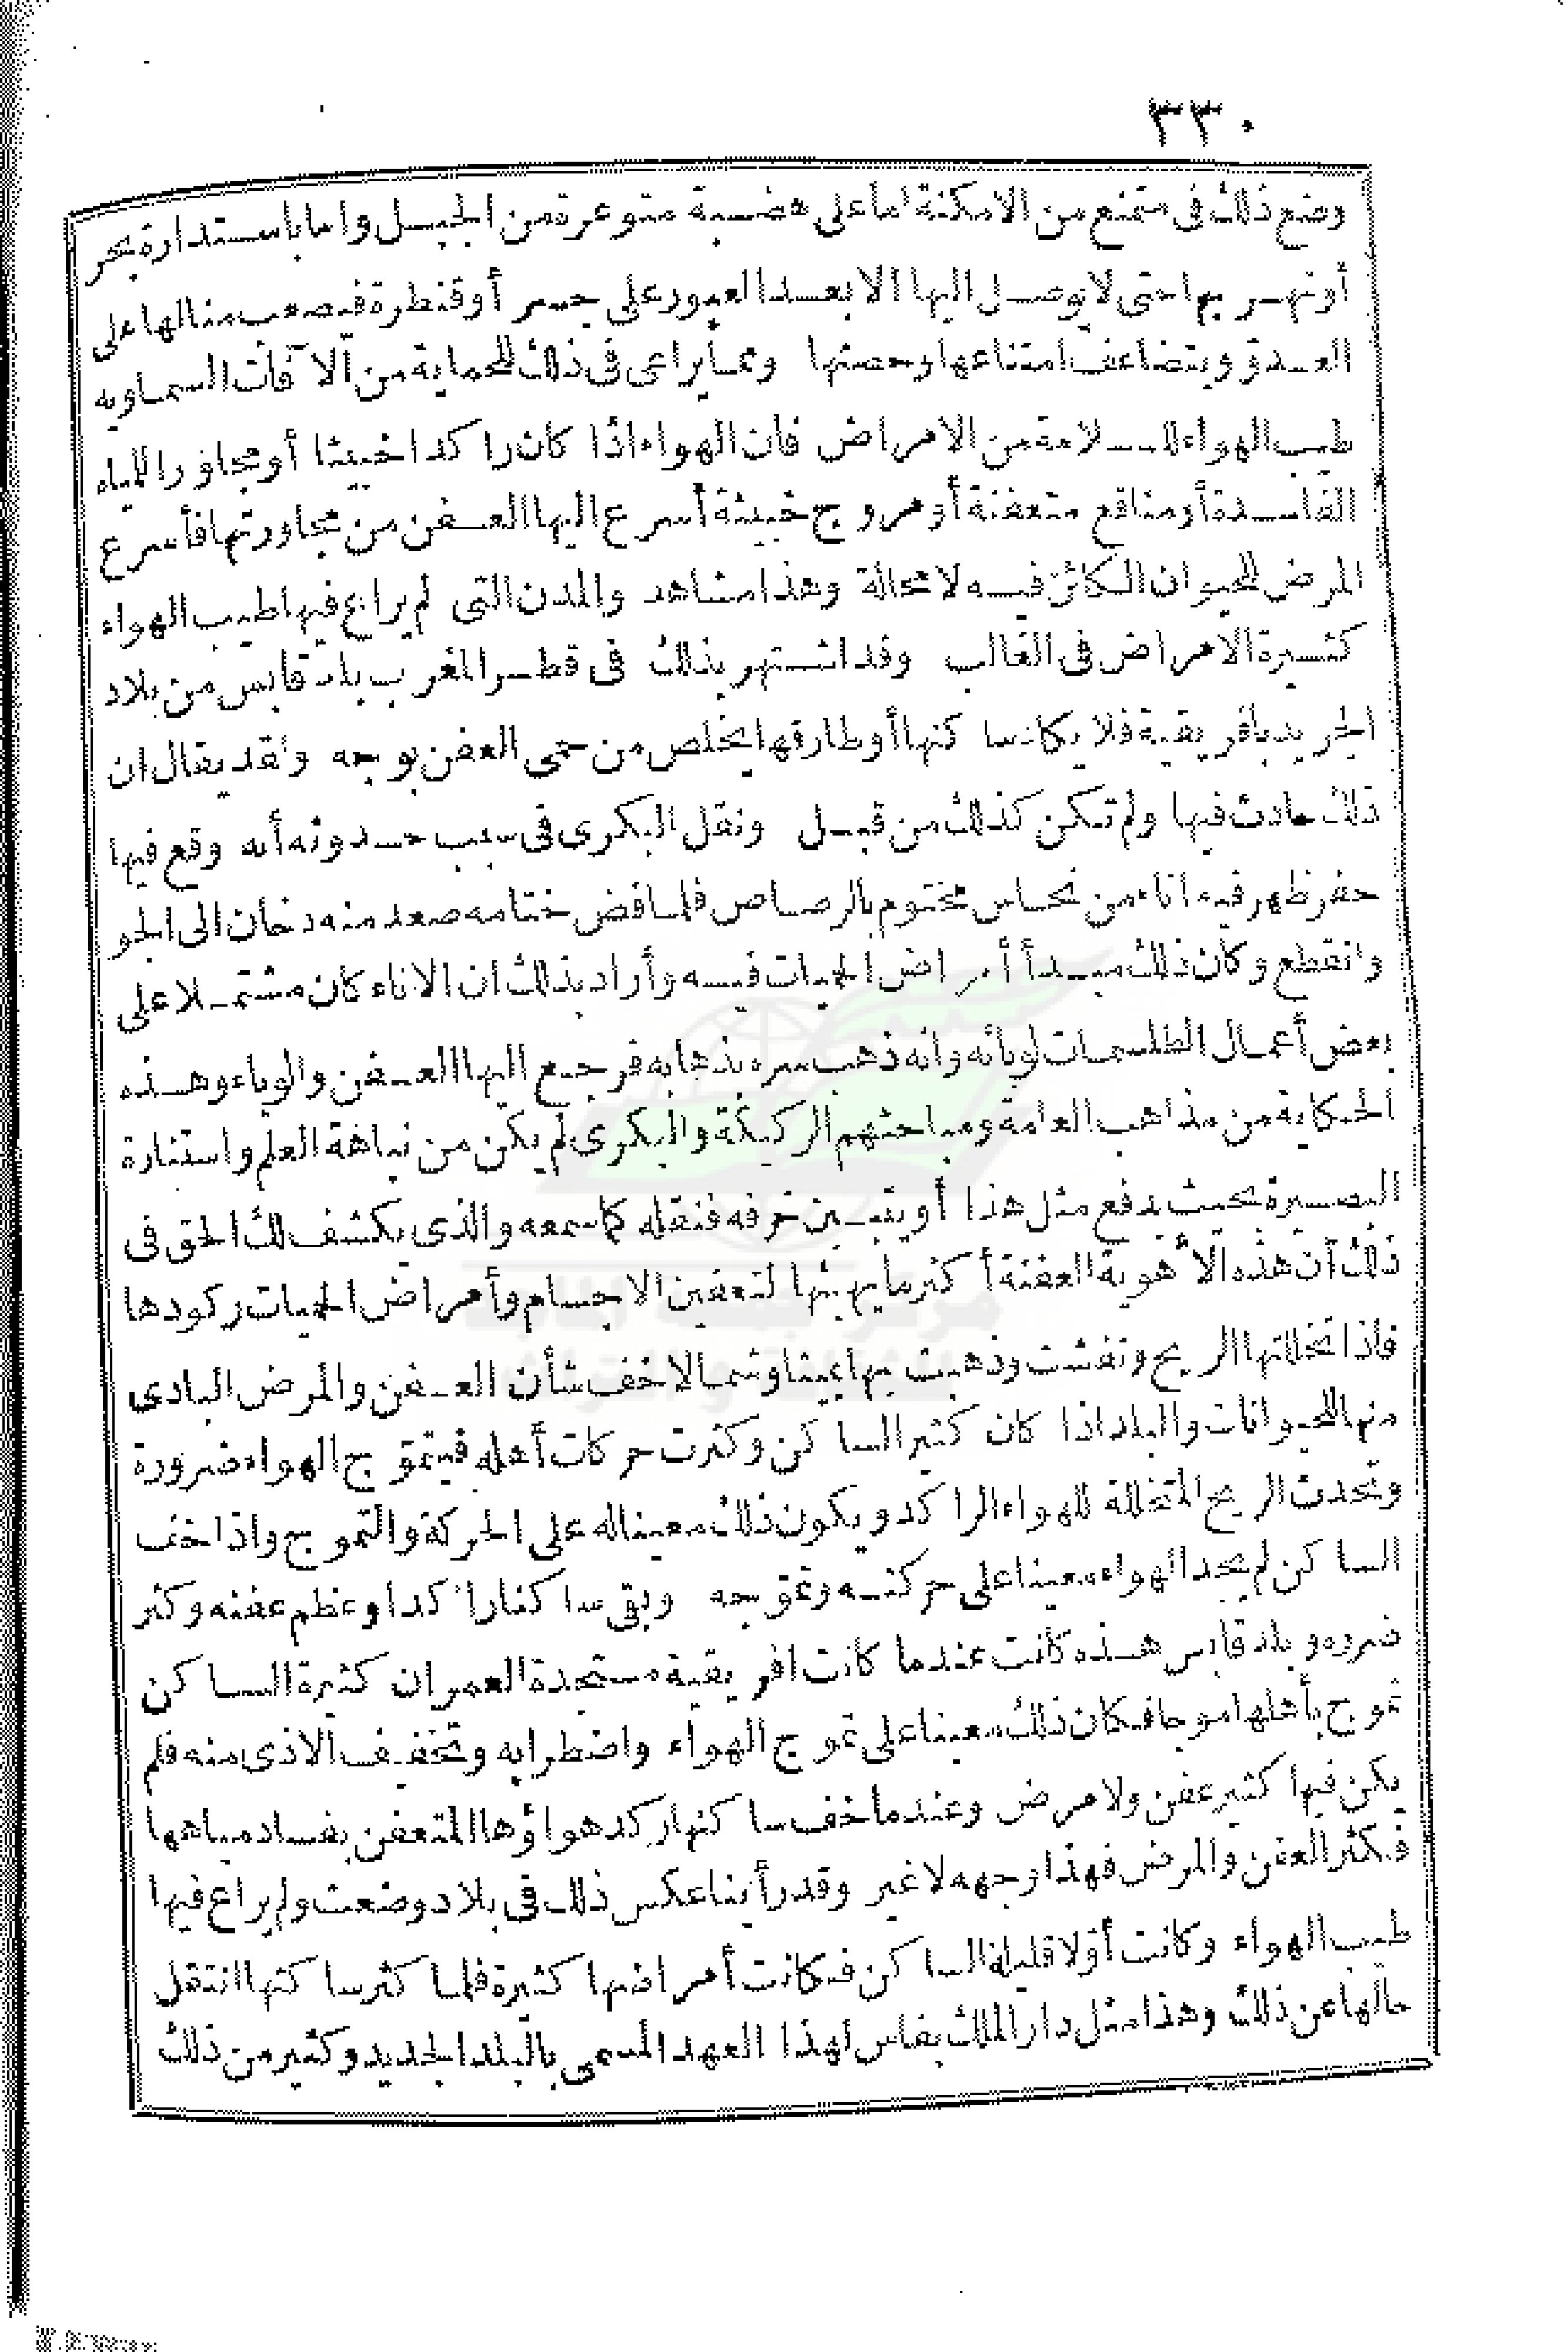 ٣٣٠
وضع ذلك فى متمنع من الامكنة اما على هضبة متوعرة من الجبل واما باستدارة بحر
أونهر بها حتى لا يوصل اليها الا بعد العبور على جسر أو قنطرة فيصعب منالها على
العدوّ ويتضاعف امتناعها وحصنها ومما يراعى فى ذلك للحماية من الآفات السماوية
طيب الهواء للسلامة من الامراض فان الهواء اذا كان راكدا خبيثا أو مجاور اللمياه
الفاسدة أو مناقع متعفنة أو مروج خبيثة أسرع اليها العفن من مجاورتها فأسرع
المرض للحيوان الكائن فيه لا محالة وهذا مشاهد والمدن التى لم يراع فيها طيب الهواء
كثيرة الامراض فى الغالب وقد اشتهر بذلك فى قطر المغرب بلد قابس من بلاد
الجريد بافريقية فلا يكاد ساكنها أو طارقها يخلص من حمى العفن بوجه ولقد يقال ان
ذلك حادث فيها ولم تكن كذلك من قبل ونقل البكرى فى سبب حدوثه أنه وقع فيها
حفر ظهر فيه اناء من نحاس مختوم بالرصاص فلما فض ختامه صعد منه دخان الى الجو
وانقطع وكان ذلك مبدأ أمراض الحميات فيه وأراد بذلك ان الاناء كان مشتملا على
بعض أعمال الطلسمات لوبائه وانه ذهب سره بذهابه فرجع اليها العفن والوباء وهذه
الحكاية من مذاهب العامة ومباحثهم الركيكة والبكرى لم يكن من نباهة العلم واستنارة
البصيرة بحيث يدفع مثل هذا أو يتبين خرفه فنقله كما سمعه والذى يكشف لك الحق فى
ذلك أن هذه الأهوية العفنة أكثر ما يهيئها لتعفين الاجسام وأمراض الحميات ركودها
فاذا تخللتها الريح وتفشت وذهبت بها يمينا وشمالا خف شأن العفن والمرض البادى
منها للحيوانات والبلد اذا كان كثير الساكن وكثرت حركات أهله فيتموّج الهواء ضرورة
وتحدث الريح المتخللة للهواء الراكد ويكون ذلك معينا له على الحركة والتموج واذا خف
الساكن لم يجد الهواء معينا على حركته وتموّجه وبقى ساكنا راكدا وعظم عفنه وكثر
ضرره وبلد قابس هذه كانت عندما كانت افريقية مستجدة العمران كثيرة الساكن
تموج بأهلها موجا فكان ذلك معينا على تموج الهواء واضطرابه وتخفيف الاذى منه فلم
يكن فيها كثير عفن ولا مرض وعندما خف ساكنها ركد هواؤها المتعفن بفساد مياهها
فكثر العفن والمرض فهذا وجهه لا غير وقد رأينا عكس ذلك فى بلاد وضعت ولم يراع فيها
طيب الهواء وكانت أوّلا قليلة الساكن فكانت أمراضها كثيرة فلما كثر ساكنها انتقل
حالها عن ذلك وهذا مثل دار الملك بفاس لهذا العهد المسمى بالبلد الجديد وكثير من ذلك